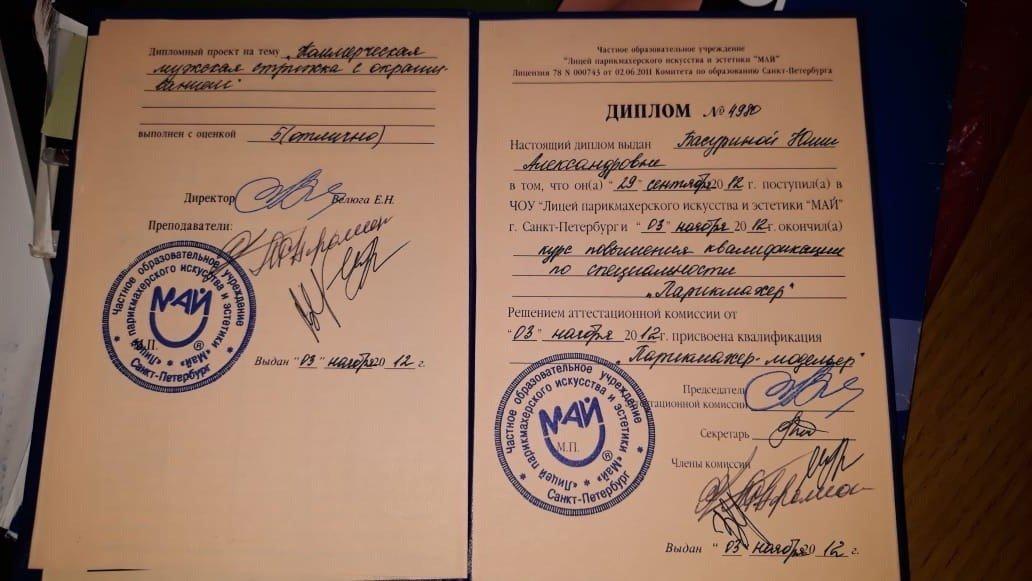 Дипломный проект на тему „Коммерческая
мужская стрижка с окраши-
ванием"
выполнен с оценкой 5 (отлично)
Директор Велюга Е.Н.
Преподаватели:
Частное образовательное учреждение
"Лицей парикмахерского искусства и эстетики «Май»
МАЙ
®
М.П.
Санкт-Петербург
Выдан "03" ноября 2012 г.
Частное образовательное учреждение
"Лицей парикмахерского искусства и эстетики "МАЙ"
Лицензия 78 N 000743 от 02.06.2011 Комитета по образованию Санкт-Петербурга
ДИПЛОМ № 4980
Настоящий диплом выдан Юлии
Александровне
в том, что он(а) "29" сентября 2012 г. поступил(а) в
ЧОУ "Лицей парикмахерского искусства и эстетики "МАЙ"
г. Санкт-Петербург и "03" ноября 2012 г. окончил(а)
курс повышения квалификации
по специальности
„Парикмахер"
Решением аттестационной комиссии от
"03" ноября 2012 г. присвоена квалификация
„Парикмахер-модельер"
Председатель
аттестационной комиссии
Секретарь
Члены комиссии
Частное образовательное учреждение
"Лицей парикмахерского искусства и эстетики «Май»
МАЙ
®
М.П.
Санкт-Петербург
Выдан "03" ноября 2012 г.